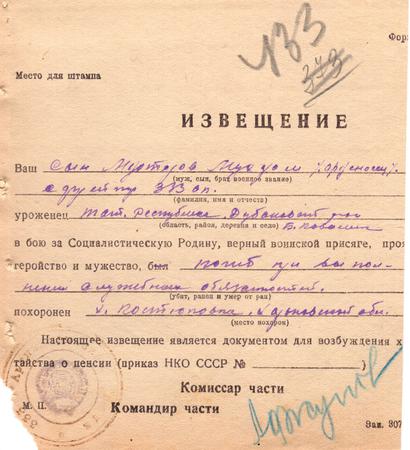 433
343
Фор
Место для штампа
ИЗВЕЩЕНИЕ
Ваш сын Муртазов
(муж, сын, брат, военное звание)
333 сп.
(фамилия, имя и отчество)
уроженец тат. Республика
(область, район, деревня и село)
в бою за Социалистическую Родину, верный воинской присяге, проя
геройство и мужество, был погиб при выпол-
нении служебных обязанностей.
(убит, ранен и умер от ран)
похоронен
(место похорон)
Настоящее извещение является документом для возбуждения х
тайства о пенсии (приказ НКО СССР №)
Комиссар части
М. П. Командир части
Зак. 307